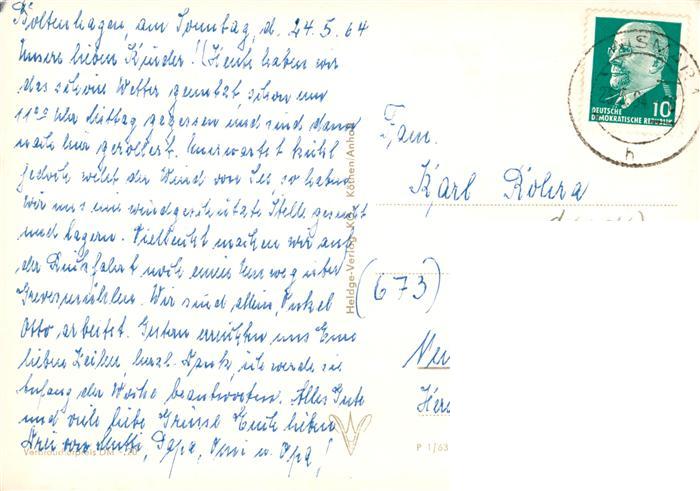 Boltenhagen, am Sonntag, d. 24.5.64
Unsere lieben Kinder! Heute haben wir
das schöne Wetter genutzt, schon um
11°° Uhr Mittag gegessen und sind dann
nach hier gerollert. Unerwartet kühl
jedoch weht der Wind von See, so haben
wir uns eine windgeschützte Stelle gesucht
und lagern. Vielleicht machen wir auf
der Rückfahrt noch einen Umweg über
Grevesmühlen. Wir sind allein, Onkel
Otto arbeitet. Gestern erreichten uns Eure
lieben Zeilen, herzl. Dank, ich werde sie
Anfang der Woche beantworten. Alles Gute
und viele liebe Grüsse Euch lieben
Drei von Mutti, Papa, Omi u. Opa!
Verbraucherpreis DM -,20
Heldge-Verlag KG Köthen/Anhalt
P 1/63
DEUTSCHE
DEMOKRATISCHE REPUBLIK
10
WISMAR 1
h
Fam.
Karl Rohra
(673)